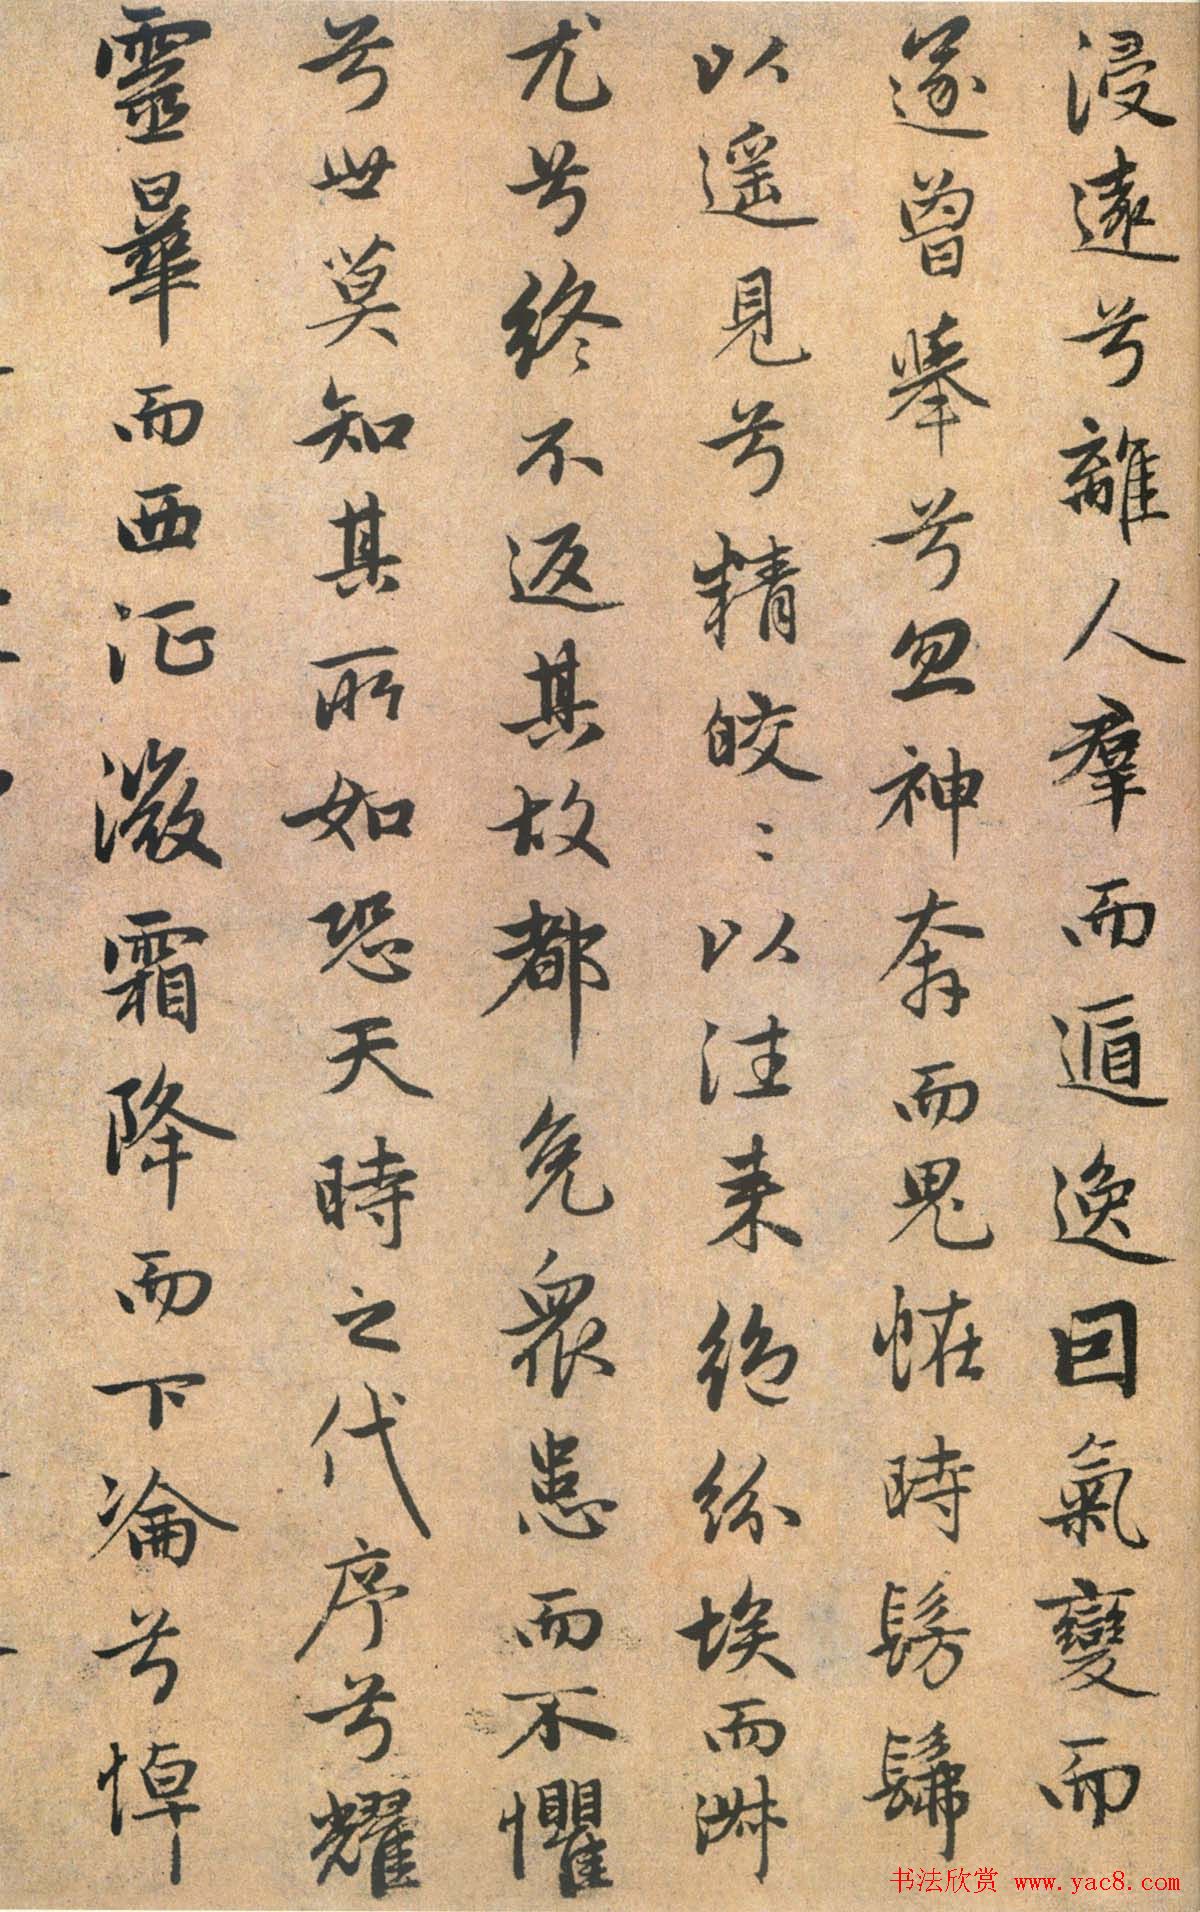 浸遠兮離人羣而遁逸因氣變而
遂曾舉兮忽神奔而鬼恠時髣髴
以遥見兮精皎〻以往来絶紛埃而淋
尤兮終不返其故都免衆患而不懼
兮世莫知其所如恐天時之代序兮耀
靈曅而西征微霜降而下淪兮悼
书法欣赏 www.yac8.com